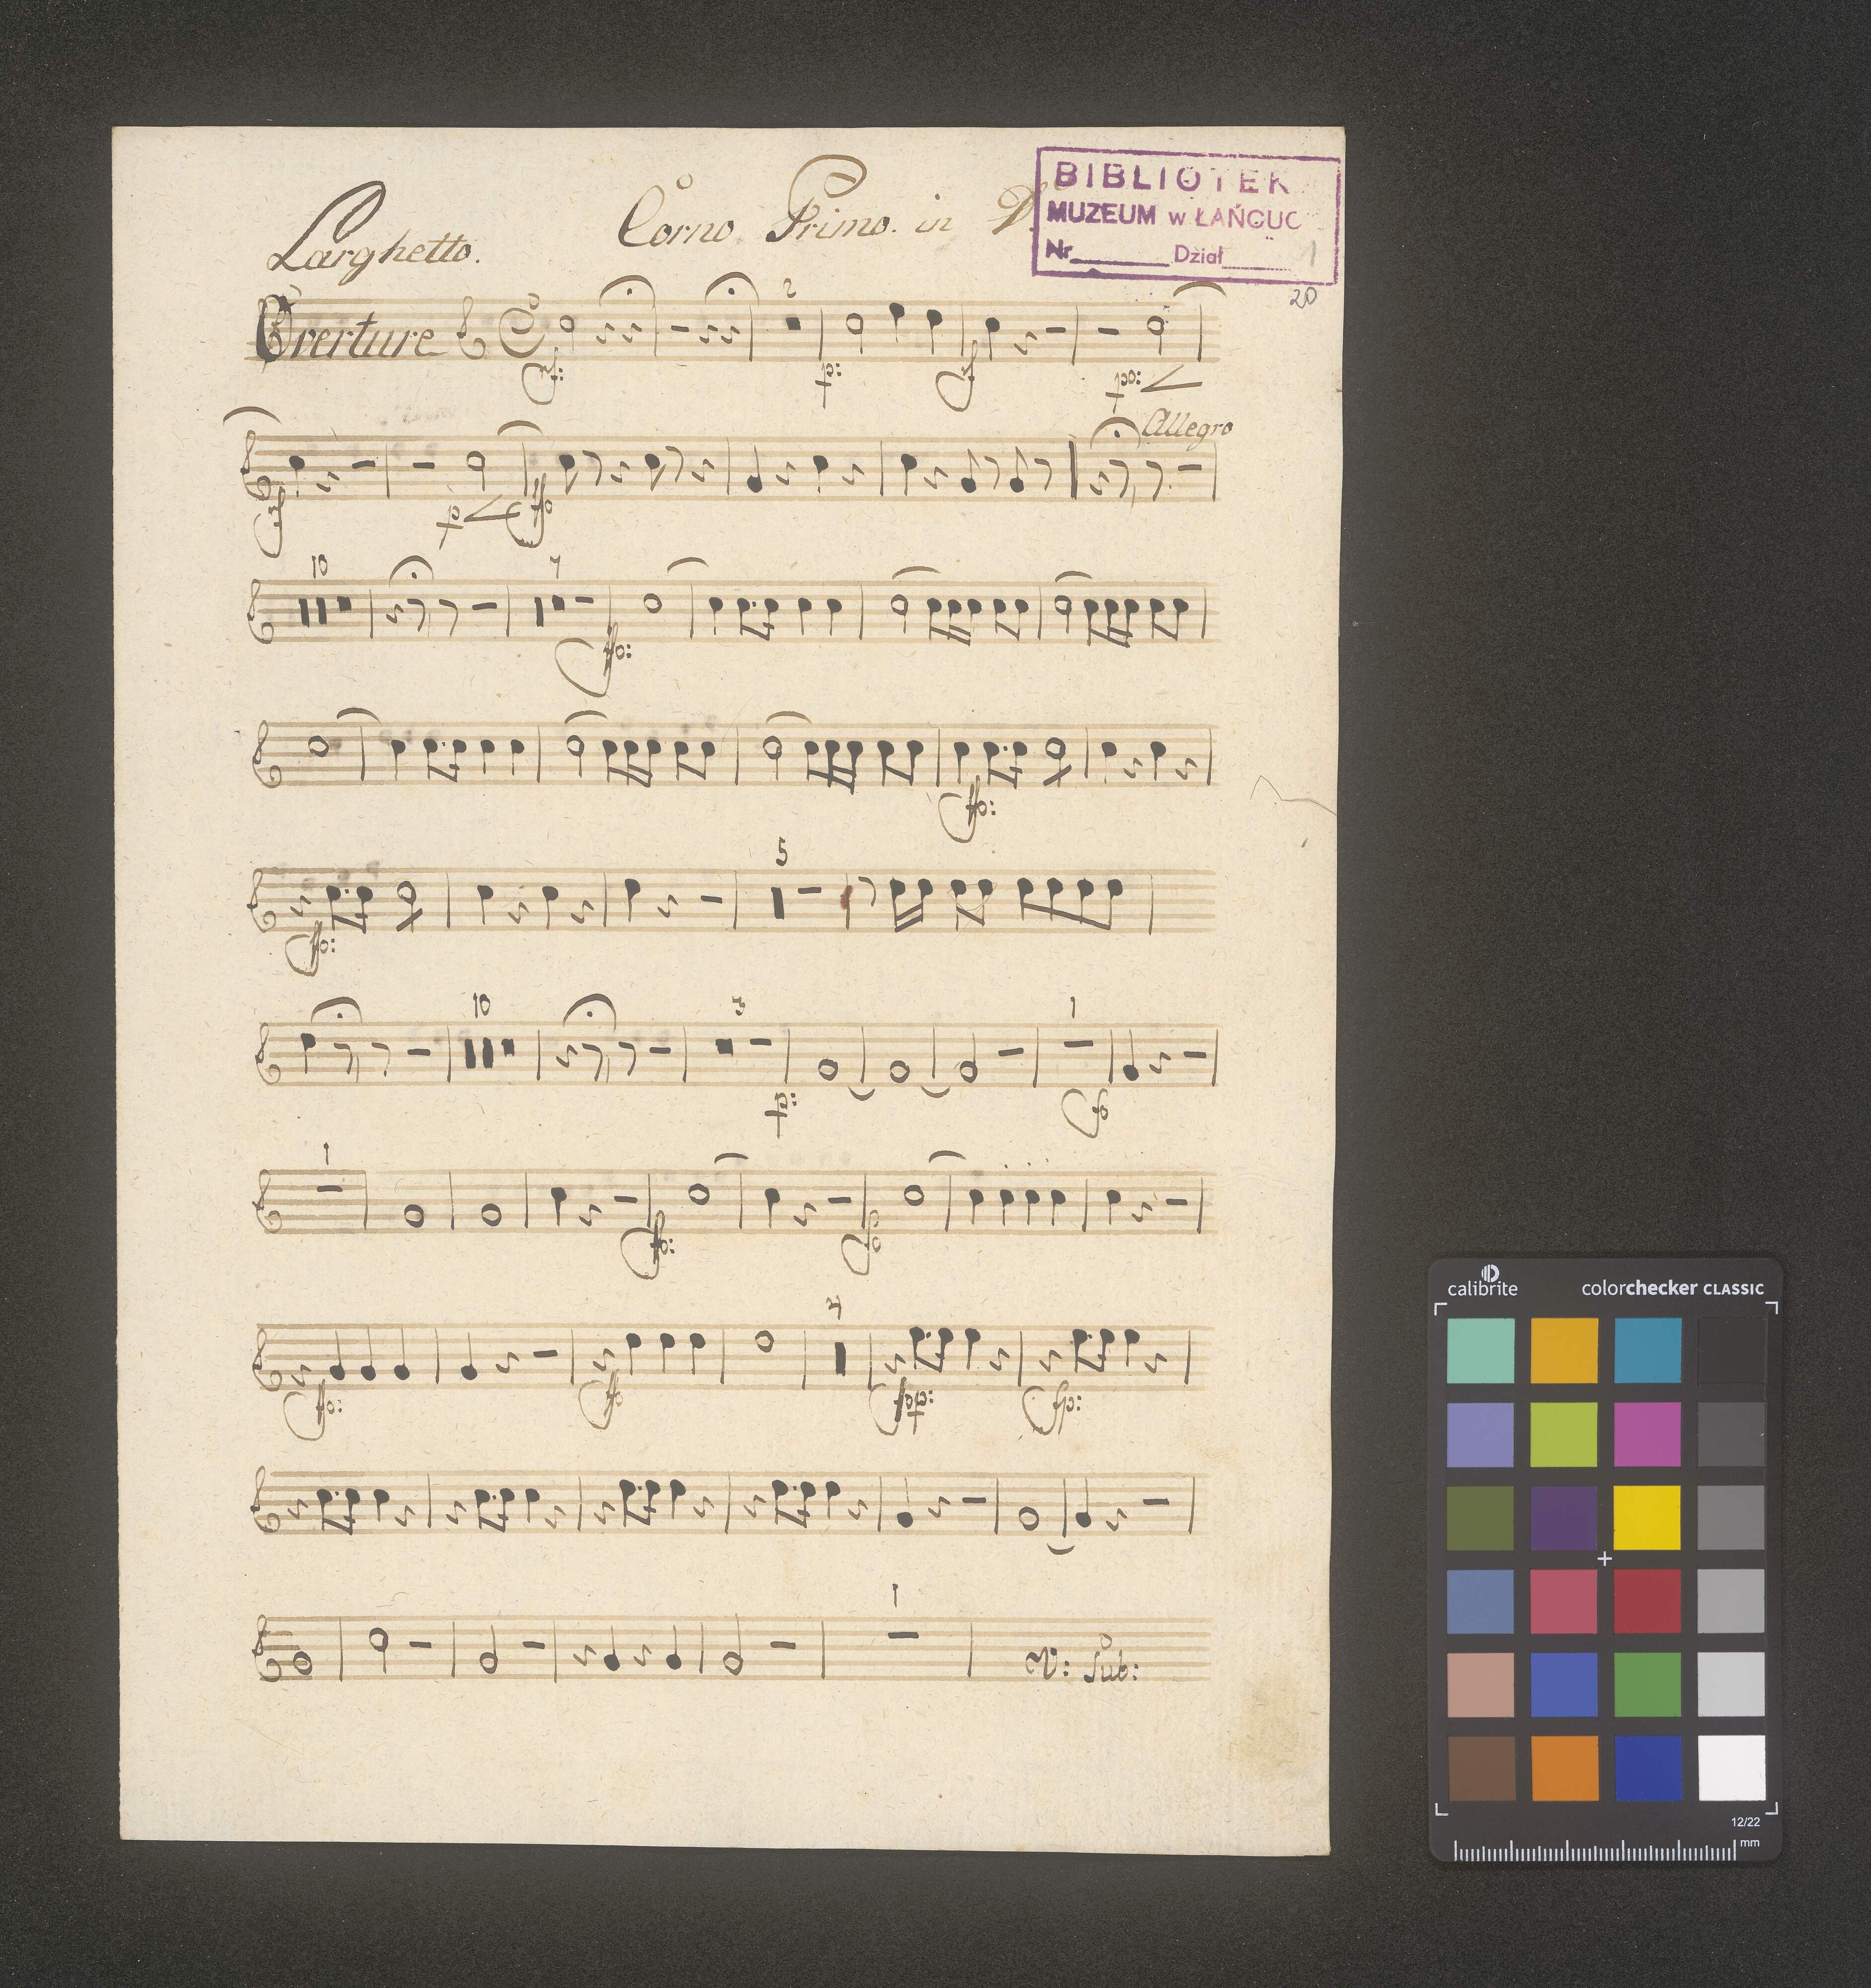 Larghetto.
Corno Primo. in D.
BIBLIOTEK
MUZEUM w ŁAŃCUC
Nr Dział 1
20
Overture
2
f: p: f po:
Allegro
f p ffo
10 7
ffo:
ffo:
5
ffo:
10 3 1
p: fo
1
ffo: fo
4
ffo: ffo fop: fp:
1
V: Sub:
calibrite colorchecker CLASSIC
12/22
mm